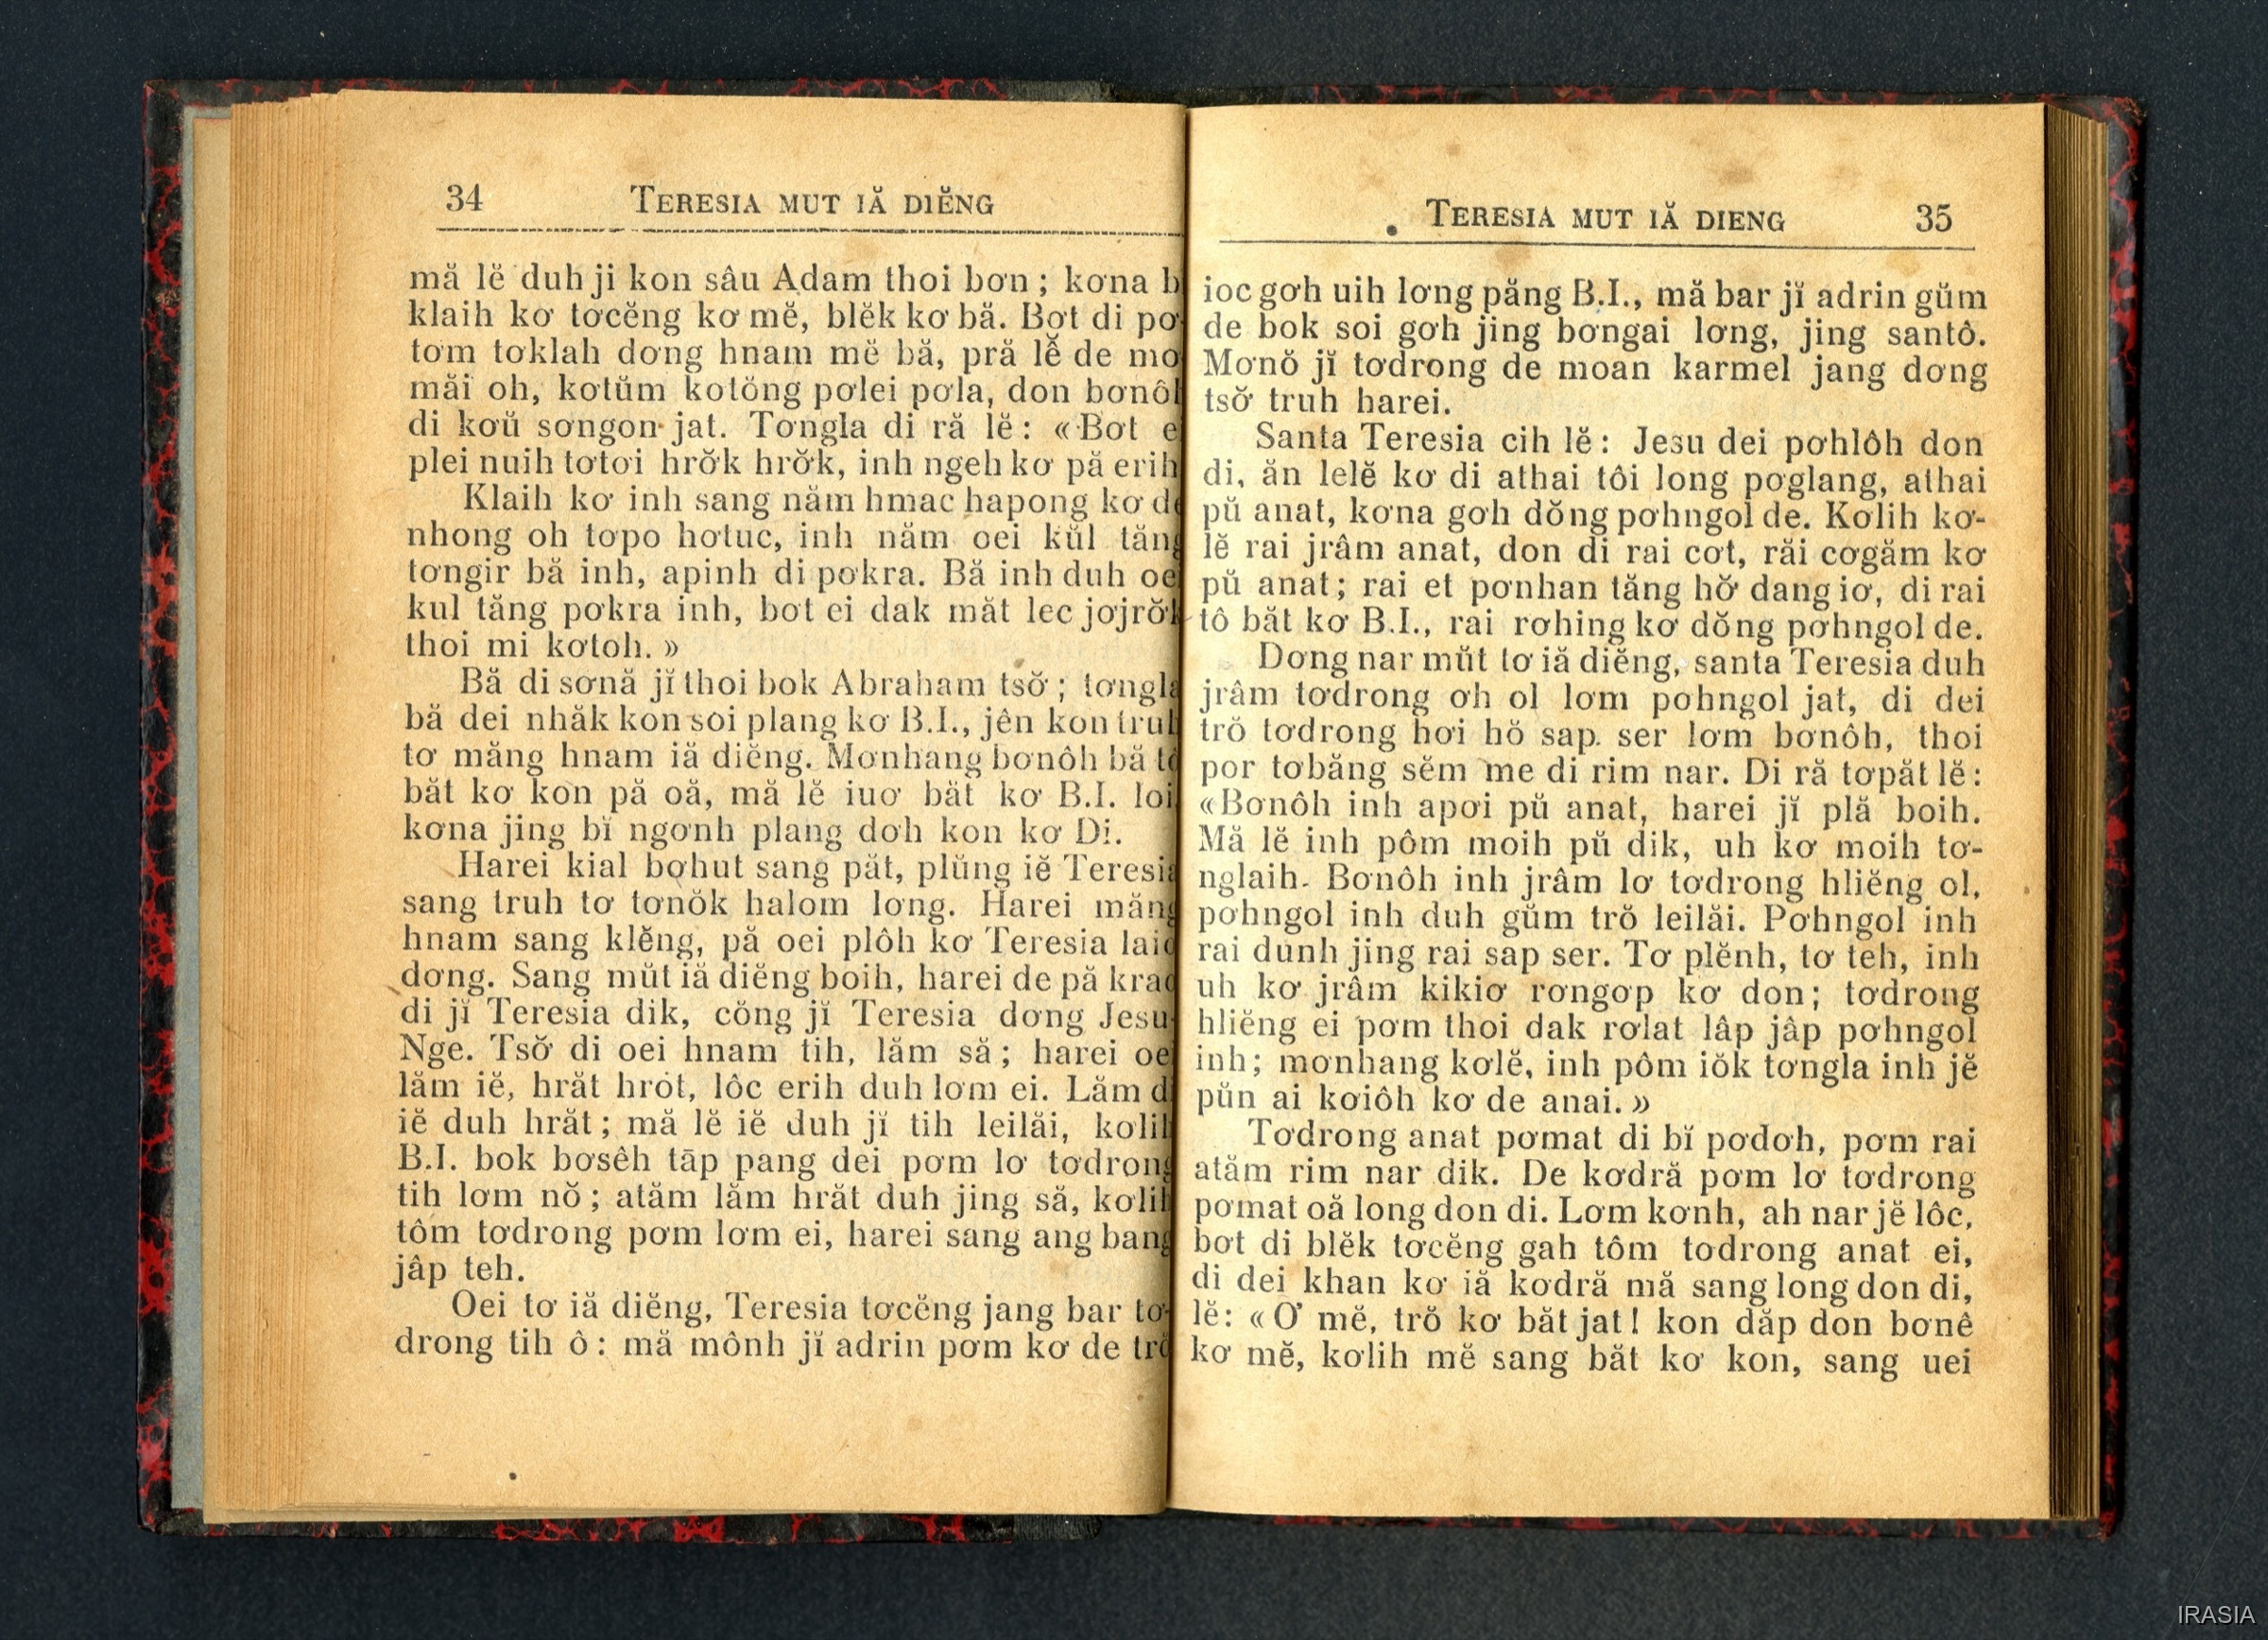 34 TERESIA MUT IĂ DIĔNG
mă lĕ duh ji kon sâu Adam thoi bơn ; kơna
klaih kơ tơcĕng kơ mĕ, blĕk kơ bă. Bơt di
tơm tơklah dơng hnam mĕ bă, pră lĕ de
măi oh, kơtŭm kotŏng pơlei pơla, don
di koŭ sơngon jat. Tơngla di ră lĕ : « Bơt
plei nuih tơtơi hrơ̆k hrơ̆k, inh ngeh kơ pă
Klaih kơ inh sang năm hmac hapong kơ
nhong oh tơpo hơtuc, inh năm oei kŭl
tơngir bă inh, apinh di pơkra. Bă inh duh
kul tăng pơkra inh, bơt ei dak măt lec
thoi mi kơtoh. »
Bă di sơnă jĭ thoi bok Abraham tsơ̆ ;
bă dei nhăk kon soi plang kơ B.I., jên kon
tơ măng hnam iă diĕng. Mơnhang bơnôh bă
băt kơ kon pă oă, mă lĕ iuơ băt kơ B.I.
kơna jing bĭ ngơnh plang dơh kon kơ Di.
Harei kial bơhut sang păt, plŭng iĕ
sang truh tơ tơnŏk halom lơng. Harei
hnam sang klĕng, pă oei plôh kơ Teresia
dơng. Sang mŭt iă diĕng boih, harei de pă
di jĭ Teresia dik, cŏng jĭ Teresia dơng Jesu-
Nge. Tsơ̆ di oei hnam tih, lăm să ; harei
lăm iĕ, hrăt hrot, lôc erih duh lơm ei. Lăm
iĕ duh hrăt ; mă lĕ iĕ duh jĭ tih leilăi,
B.I. bok bơsêh tăp pang dei pơm lơ
tih lơm nŏ ; atăm lăm hrăt duh jing să,
tôm tơdrong pơm lơm ei, harei sang ang
jâp teh.
Oei tơ iă diĕng, Teresia tơcĕng jang bar tơ-
drong tih ô : mă mônh jĭ adrin pơm kơ de
TERESIA MUT IĂ DIENG 35
ioc gơh uih lơng păng B.I., mă bar jĭ adrin gŭm
de bok soi gơh jing bơngai lơng, jing santô.
Mơnŏ jĭ tơdrong de moan karmel jang dơng
tsơ̆ truh harei.
Santa Teresia cih lĕ : Jesu dei pơhlôh don
di, ăn lelĕ kơ di athai tôi long pơglang, athai
pŭ anat, kơna gơh dŏng pơhngol de. Kơlih kơ-
lĕ rai jrâm anat, don di rai cơt, răi cơgăm kơ
pŭ anat ; rai et pơnhan tăng hơ̆ dang iơ, di rai
tô băt kơ B.I., rai rơhing kơ dŏng pơhngol de.
Dơng nar mŭt tơ iă diĕng, santa Teresia duh
jrâm tơdrong ơh ol lơm pơhngol jat, di dei
trŏ tơdrong hơi hŏ sap ser lơm bơnôh, thoi
por tơbăng sĕm me di rim nar. Di ră tơpăt lĕ :
« Bơnôh inh apơi pŭ anat, harei jĭ plă boih.
Mă lĕ inh pôm moih pŭ dik, uh kơ moih tơ-
nglaih. Bơnôh inh jrâm lơ tơdrong hliĕng ol,
pơhngol inh duh gŭm trŏ leilăi. Pơhngol inh
rai dunh jing rai sap ser. Tơ plĕnh, tơ teh, inh
uh kơ jrâm kikiơ rơngơp kơ don ; tơdrong
hliĕng ei pơm thoi dak rơlat lâp jâp pơhngol
inh ; mơnhang kơlĕ, inh pôm iŏk tơngla inh jĕ
pŭn ai kơiôh kơ de anai. »
Tơdrong anat pơmat di bĭ pơdơh, pơm rai
atăm rim nar dik. De kơdră pơm lơ tơdrong
pơmat oă long don di. Lơm kơnh, ah nar jĕ lôc,
bơt di blĕk tơcĕng gah tôm tơdrong anat ei,
di dei khan kơ iă kơdră mă sang long don di,
lĕ : « Ơ mĕ, trŏ kơ băt jat ! kon dăp don bơnê
kơ mĕ, kơlih mĕ sang băt kơ kon, sang uei
IRASIA